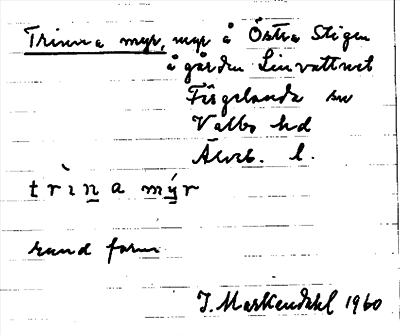 Trinna myr, myr å Östra Stigen
å gården Linvattnet
Färgelanda sn
Valbo hd
Älvsb. l.
t r ì n a m ý r
rund form
J. Markendahl 1960